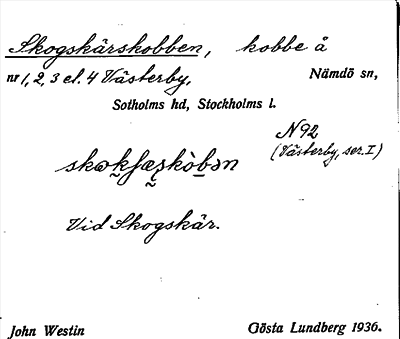 Skogskärskobben, kobbe å
nr 1, 2, 3 el. 4 Västerby, Nämdö sn,
Sotholms hd, Stockholms l.
N 92
(Västerby, ser. I)
Vid Skogskär.
John Westin Gösta Lundberg 1936.